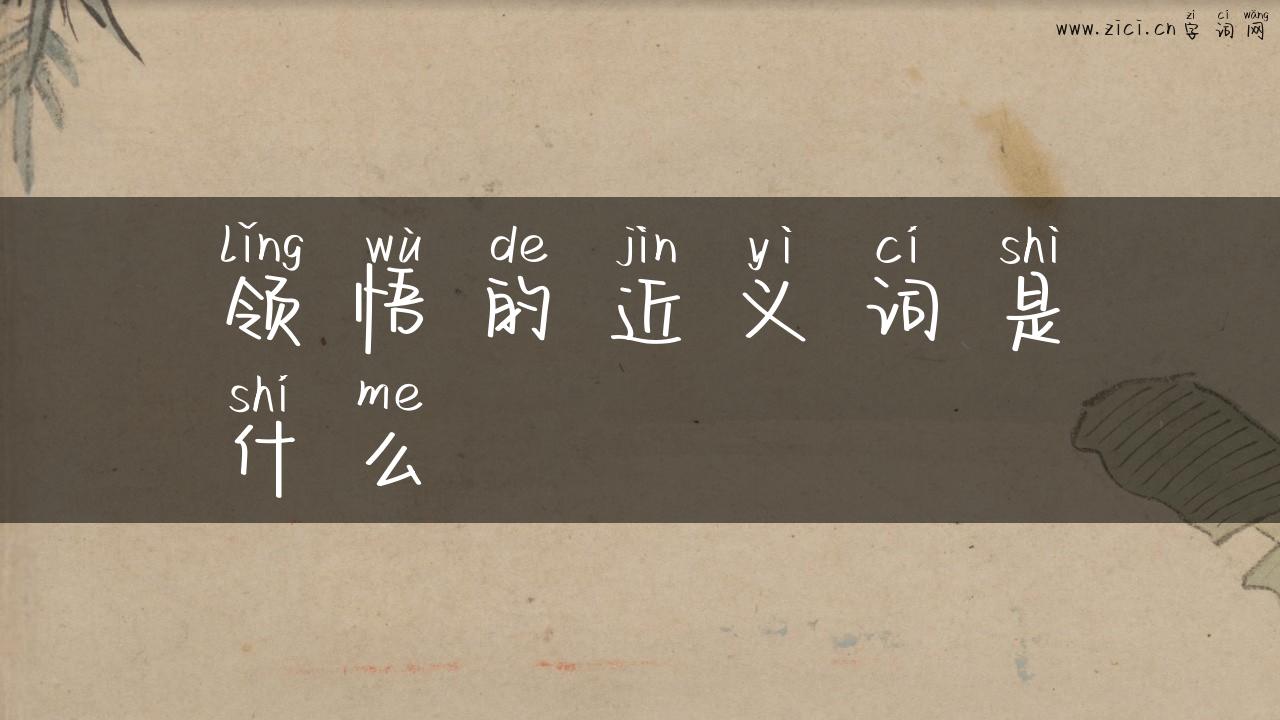 zì cí wǎng
www.zici.cn 字 词 网
lǐng wù de jìn yì cí shì
领 悟 的 近 义 词 是
shí me
什 么